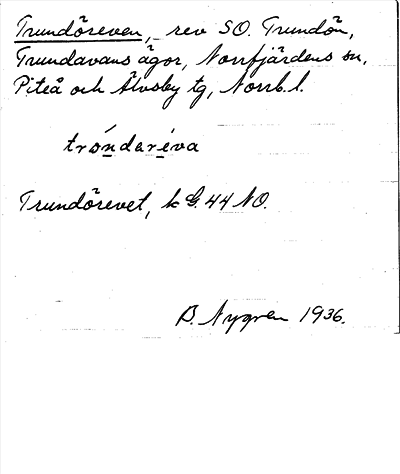 Trundöreven, rev SO. Trundön,
Trundavans ägor, Norrfjärdens sn,
Piteå och Älvsby tg, Norrb. l.
tróndəréva
Trundörevet, k G. 44 NO.
B. Nygren 1936.